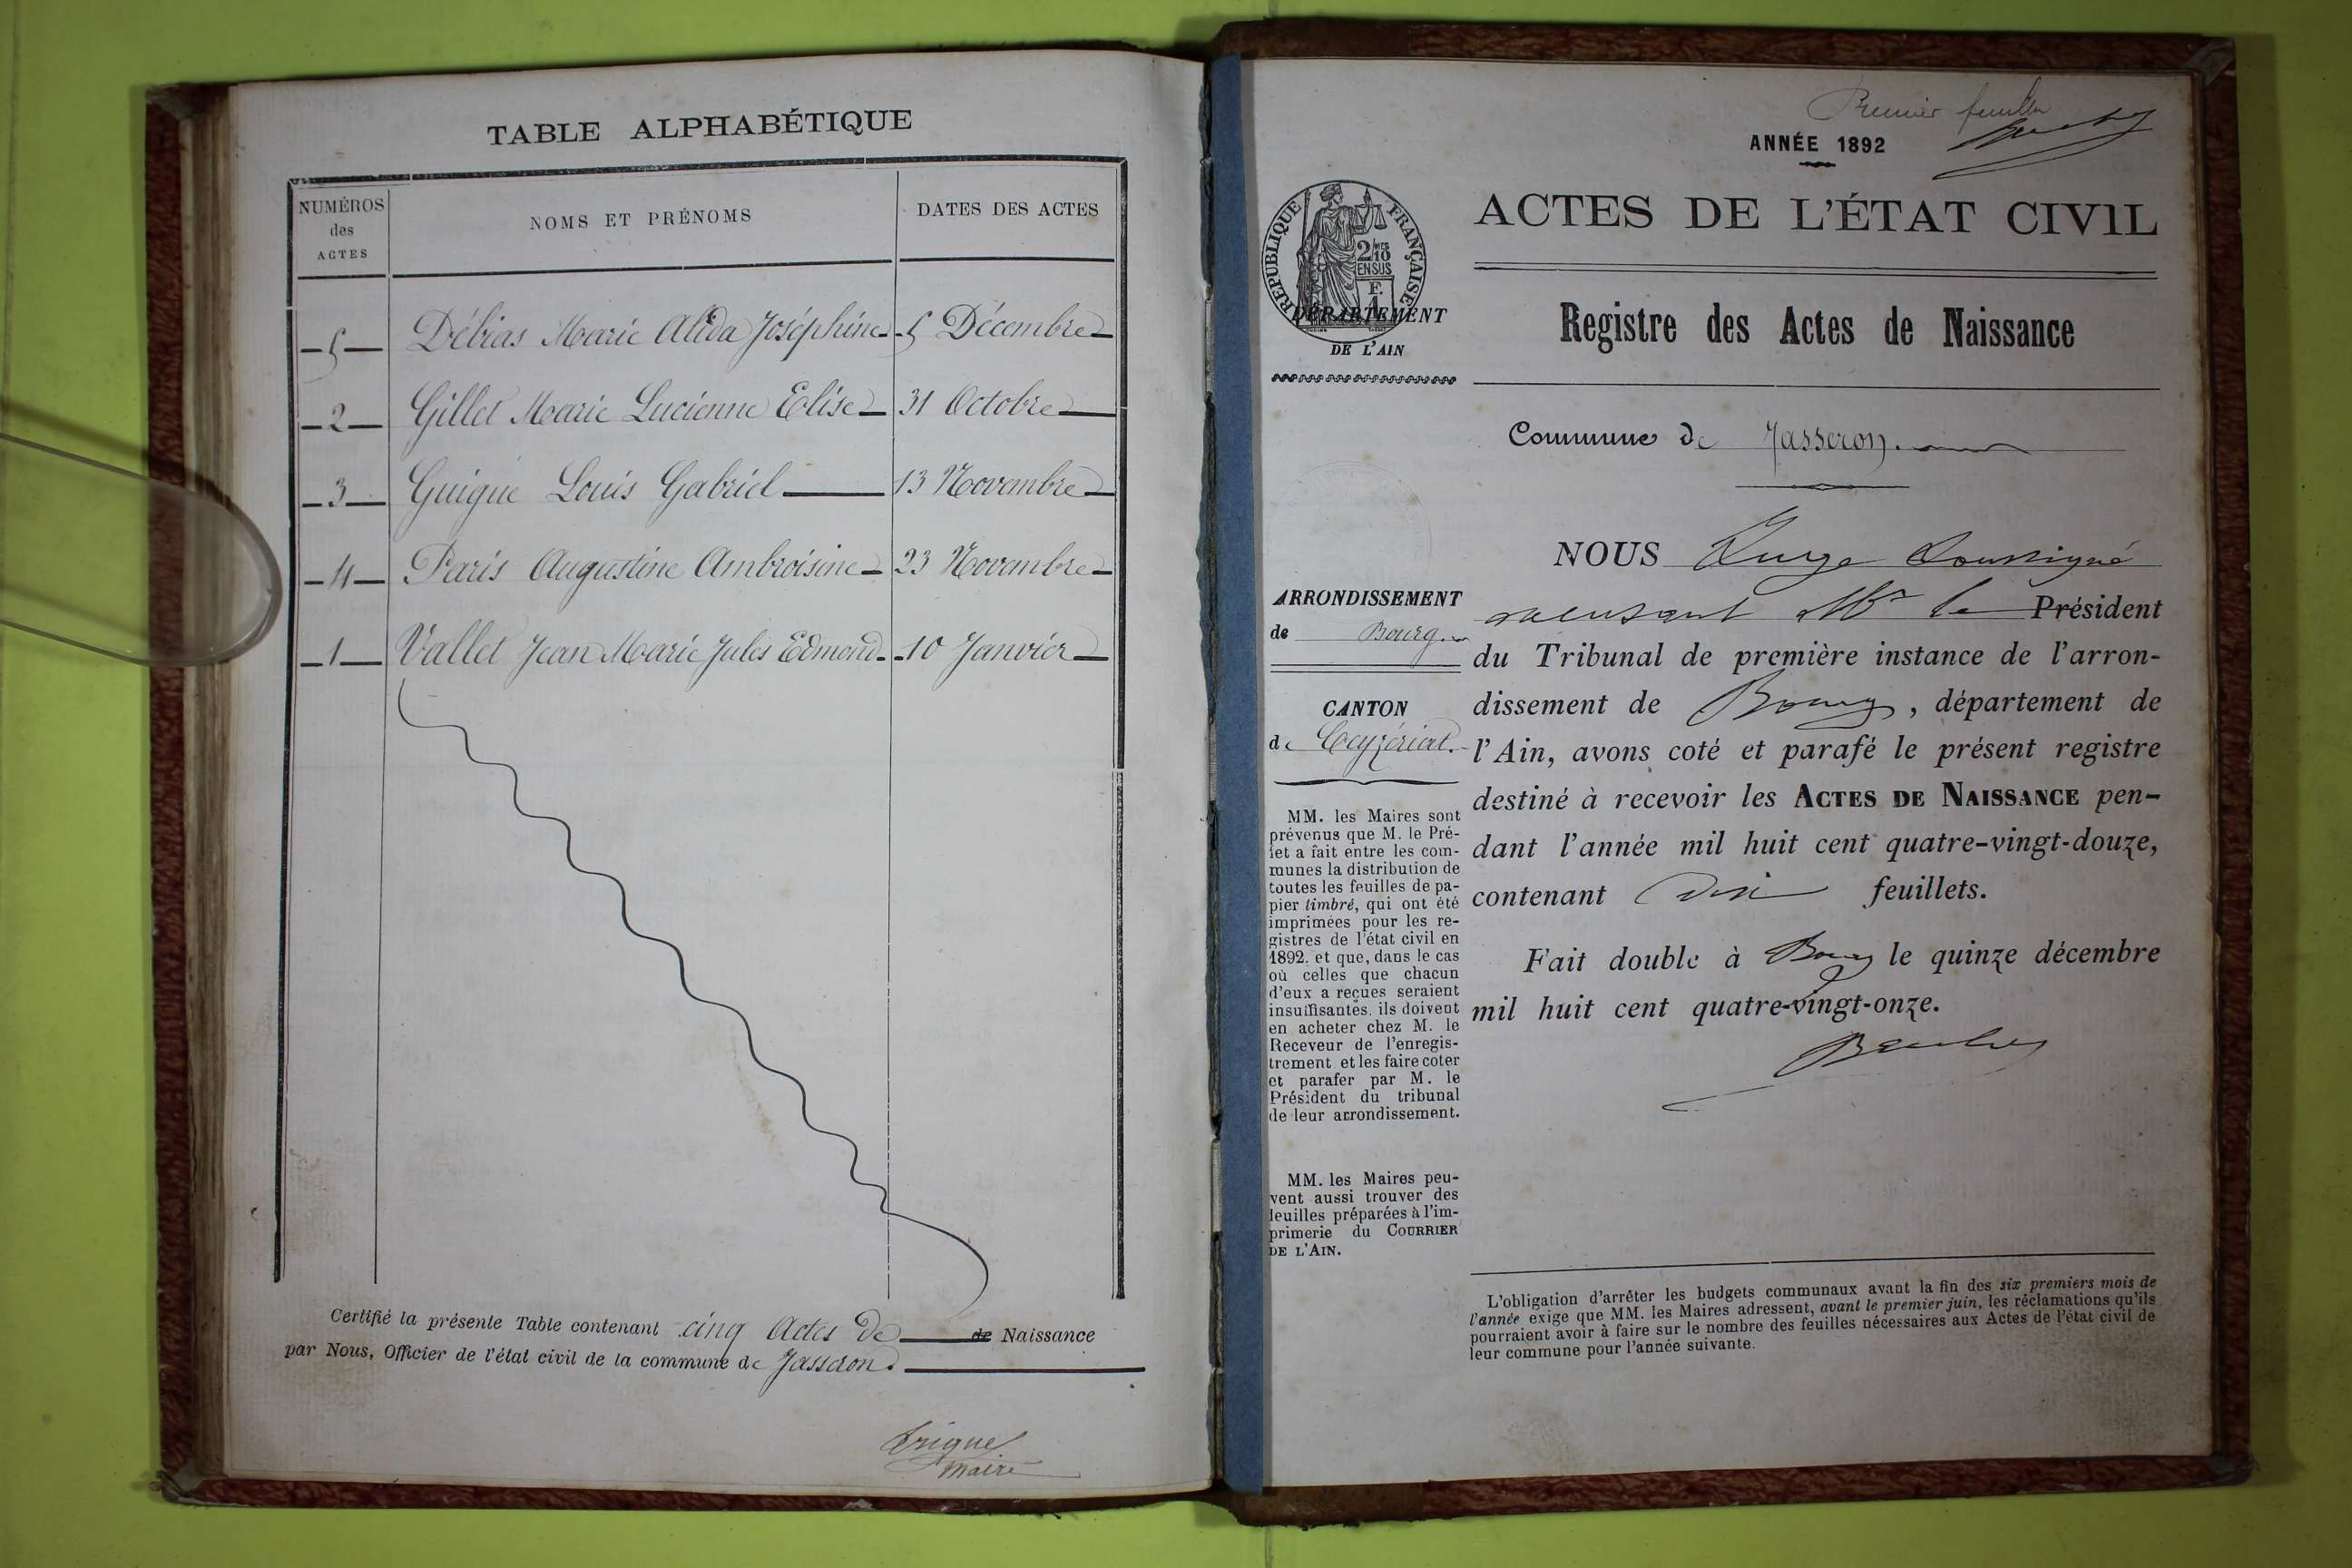 TABLE ALPHABÉTIQUE
NUMÉROS
des
ACTES
NOMS ET PRÉNOMS
DATES DES ACTES
5 Débias Marie Alida Joséphine 5 Décembre
2 Gillet Marie Lucienne Elise 31 Octobre
3 Guigue Louis Gabriel 13 Novembre
4 Paris Augustine Ambroisine 23 Novembre
1 Vallet Jean Marie Jules Edmond 10 Janvier
Certifié la présente Table contenant cinq Actes de de Naissance
par Nous, Officier de l'état civil de la commune de Jasseron.
Maire
Premier feuillet
ANNÉE 1892
RÉPUBLIQUE FRANÇAISE
2/10
EN SUS
DÉPARTEMENT
DE L'AIN
ACTES DE L'ÉTAT CIVIL
Registre des Actes de Naissance
Commune de Jasseron.
ARRONDISSEMENT
de Bourg.
CANTON
de Ceyzériat.
MM. les Maires sont
prévenus que M. le Pré-
fet a fait entre les com-
munes la distribution de
toutes les feuilles de pa-
pier timbré, qui ont été
imprimées pour les re-
gistres de l'état civil en
1892, et que, dans le cas
où celles que chacun
d'eux a reçues seraient
insuffisantes, ils doivent
en acheter chez M. le
Receveur de l'enregis-
trement et les faire coter
et parafer par M. le
Président du tribunal
de leur arrondissement.
MM. les Maires peu-
vent aussi trouver des
feuilles préparées à l'im-
primerie du COURRIER
DE L'AIN.
NOUS Juge Soussigné
Mr le Président
du Tribunal de première instance de l'arron-
dissement de Bourg, département de
l'Ain, avons coté et parafé le présent registre
destiné à recevoir les ACTES DE NAISSANCE pen-
dant l'année mil huit cent quatre-vingt-douze,
contenant dix feuillets.
Fait double à Bourg le quinze décembre
mil huit cent quatre-vingt-onze.
L'obligation d'arrêter les budgets communaux avant la fin des six premiers mois de
l'année exige que MM. les Maires adressent, avant le premier juin, les réclamations qu'ils
pourraient avoir à faire sur le nombre des feuilles nécessaires aux Actes de l'état civil de
leur commune pour l'année suivante.